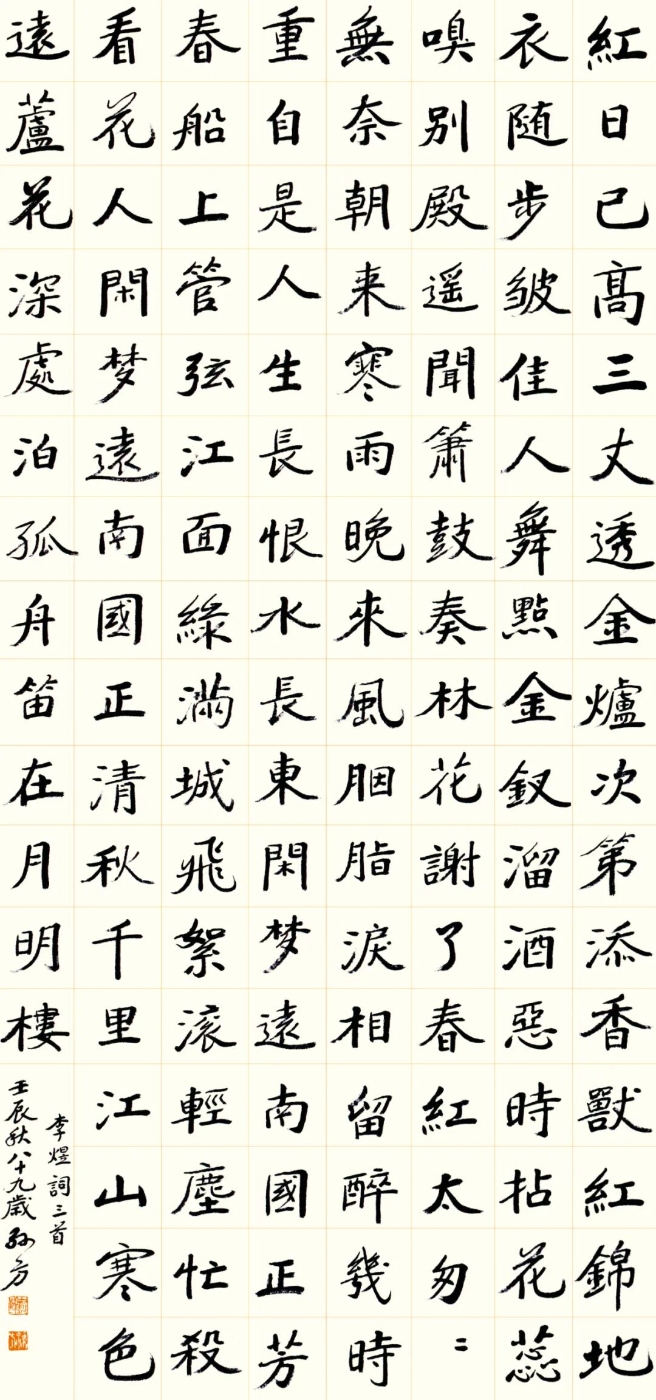 紅日已高三丈透金爐次第添香獸紅錦地
衣随步皱佳人舞點金釵溜酒惡時拈花蕊
嗅别殿遥聞簫鼓奏林花謝了春紅太匆〻
無奈朝来寒雨晚來風胭脂淚相留醉幾時
重自是人生長恨水長東閑梦遠南國正芳
春船上管弦江面緑滿城飛絮滚輕塵忙殺
看花人閑梦遠南國正清秋千里江山寒色
遠蘆花深處泊孤舟笛在月明樓
李煜詞三首
壬辰秋八十九歲